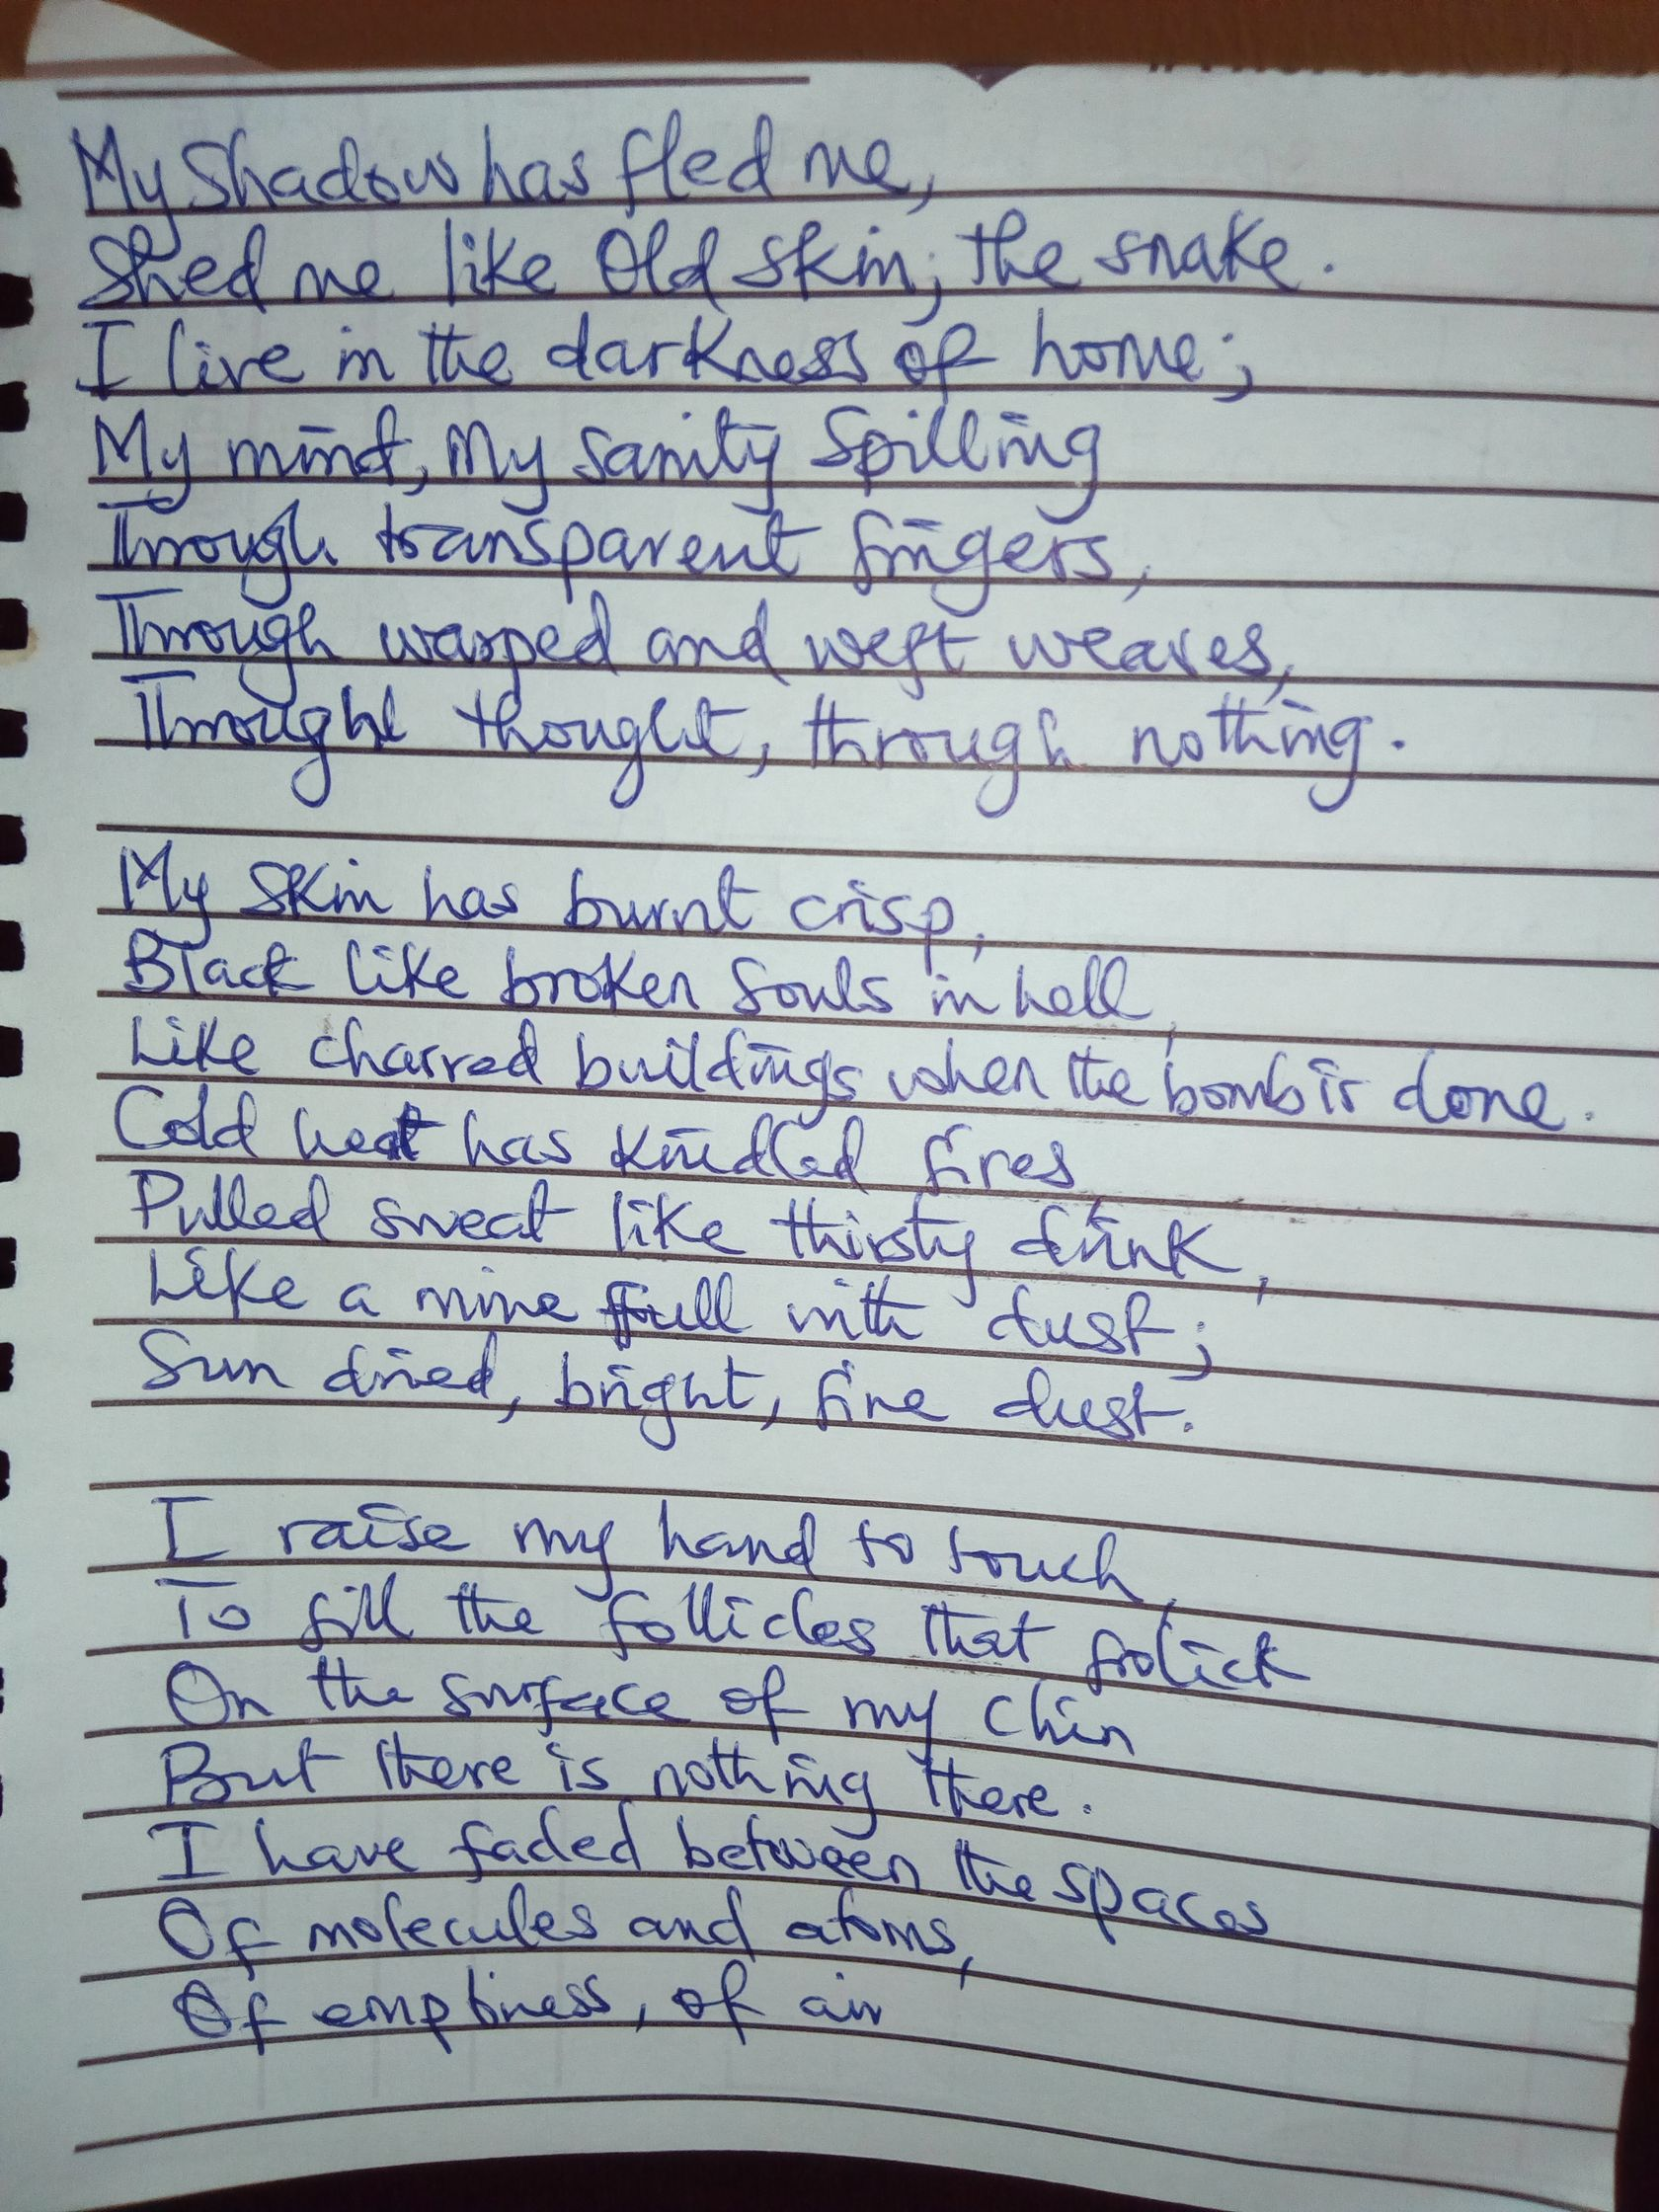 My Shadow has fled me,
Shed me like Old skin; the snake.
I live in the darkness of home;
My mind, My sanity spilling
Through transparent fingers,
Through warped and weft weaves,
Through thought, through nothing.
My skin has burnt crisp,
Black like broken souls in hell,
Like charred buildings when the bomb is done.
Cold heat has kindled fires,
Pulled sweat like thirsty drink,
Like a mine full with dust;
Sun dried, bright, fine dust.
I raise my hand to touch,
To fill the follicles that frolick
On the surface of my chin
But there is nothing there.
I have faded between the spaces
Of molecules and atoms,
Of emptiness, of air